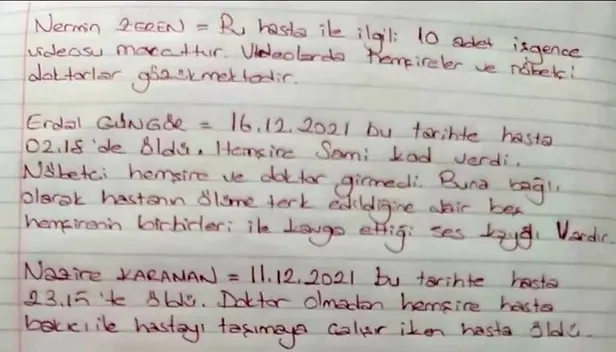 Nermin ZEREN = Bu hasta ile ilgili 10 adet işgence
videosu mevcuttur. Videolarda hemşireler ve nöbetçi
doktorlar gözükmektedir.
Erdal GÜNGÖR = 16.12.2021 bu tarihte hasta
02.15'de öldü. Hemşire Sami kod verdi.
Nöbetci hemşire ve doktor girmedi. Buna bağlı
olarak hastanın ölüme terk edildiğine dair beş
hemşirenin birbirleri ile kavga ettiği ses kaydı Vardır.
Nazire KARANAN = 11.12.2021 bu tarihte hasta
23.15'te öldü. Doktor olmadan hemşire hasta
bakıcı ile hastayı taşımaya çalışır iken hasta öldü.